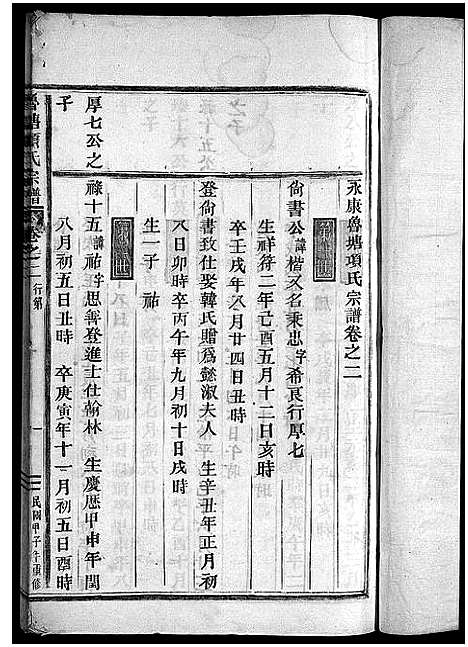 永康魯塘項氏宗譜卷之二
尙書公諱楷又名秉忠字希良行厚七
生祥符二年己酉五月十二日亥時
卒壬戌年八月廿四日丑時
登尙書致仕娶韓氏贈爲懿淑夫人 生辛丑年正月初
八日卯時卒丙午年九月初十日戌時
生一子 祐
厚七公之子
祿十五諱祐字思善登進士仕翰林 生慶歷甲申年閏
八月初五日丑時 卒庚寅年十一月初五日酉時
魯塘項氏宗譜 卷之二 行第 一 民國甲子年重修